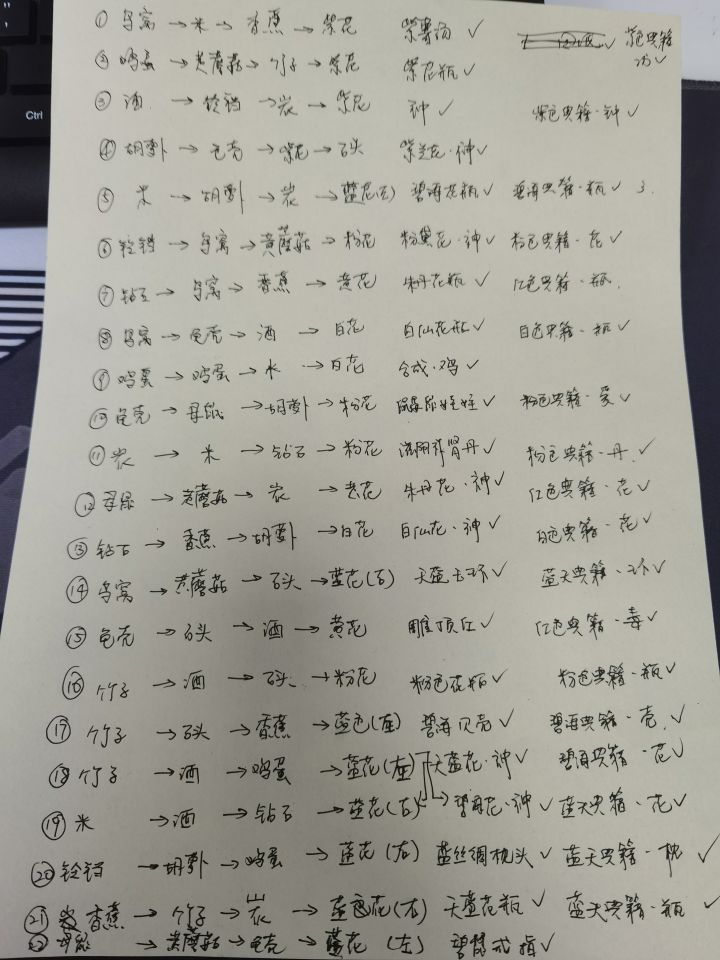 Ctrl
① 鸟窝 → 米 → 香蕉 → 紫花 紫薯汤 ✓ 紫色典籍·汤 ✓
② 鸡蛋 → 黄蘑菇 → 竹子 → 紫花 紫花瓶 ✓
③ 酒 → 铃铛 → 炭 → 紫花 钟 ✓ 紫色典籍·钟 ✓
④ 胡萝卜 → 龟壳 → 紫花 → 石头 紫兰花·神 ✓
⑤ 米 → 胡萝卜 → 炭 → 蓝花(左) 碧海花瓶 ✓ 碧海典籍·瓶 ✓ 3.
⑥ 铃铛 → 鸟窝 → 黄蘑菇 → 粉花 粉黛花·神 ✓ 粉色典籍·花 ✓
⑦ 钻石 → 鸟窝 → 香蕉 → 黄花 朱丹花瓶 ✓ 红色典籍·瓶.
⑧ 鸟窝 → 龟壳 → 酒 → 白花 白仙花瓶 ✓ 白色典籍·瓶 ✓
⑨ 鸡蛋 → 鸡蛋 → 米 → 白花 合成·鸡 ✓
⑩ 龟壳 → 母鼠 → 胡萝卜 → 粉花 娃娃 ✓ 粉色典籍·爱 ✓
⑪ 炭 → 米 → 钻石 → 粉花 肾丹 ✓ 粉色典籍·丹 ✓
⑫ → 黄蘑菇 → 炭 → 黄花 朱丹花·神 ✓ 红色典籍·花 ✓
⑬ 钻石 → 香蕉 → 胡萝卜 → 白花 白仙花·神 ✓ 白色典籍·花 ✓
⑭ 鸟窝 → 黄蘑菇 → 石头 → 蓝花(右) 天蓝玉环 ✓ 蓝天典籍·环 ✓
⑮ 龟壳 → 石头 → 酒 → 黄花 雕顶红 ✓ 红色典籍·毒 ✓
⑯ 竹子 → 酒 → 石头 → 粉花 粉色花瓶 ✓ 粉色典籍·瓶 ✓
⑰ 竹子 → 石头 → 香蕉 → 蓝色(左) 碧海贝壳 ✓ 碧海典籍·壳 ✓
⑱ 竹子 → 酒 → 鸡蛋 → 蓝花(左) 天蓝花·神 ✓ 碧海典籍·花 ✓
⑲ 米 → 酒 → 钻石 → 蓝花(右) 碧海花·神 ✓ 蓝天典籍·花 ✓
⑳ 铃铛 → 胡萝卜 → 鸡蛋 → 蓝花(右) 蓝丝绸枕头 ✓ 蓝天典籍·枕 ✓
㉑ 香蕉 → 竹子 → 炭 → 蓝色花(右) 天蓝花瓶 ✓ 蓝天典籍·瓶 ✓
㉒ → 黄蘑菇 → 龟壳 → 蓝花(左) 戒指 ✓